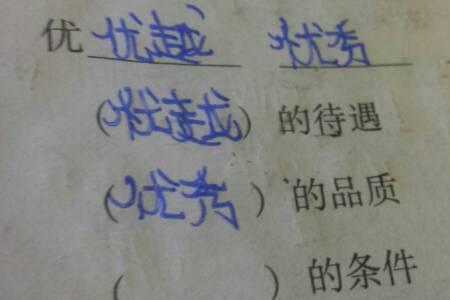 优 优越 优秀
(优越) 的待遇
(优秀) 的品质
( ) 的条件